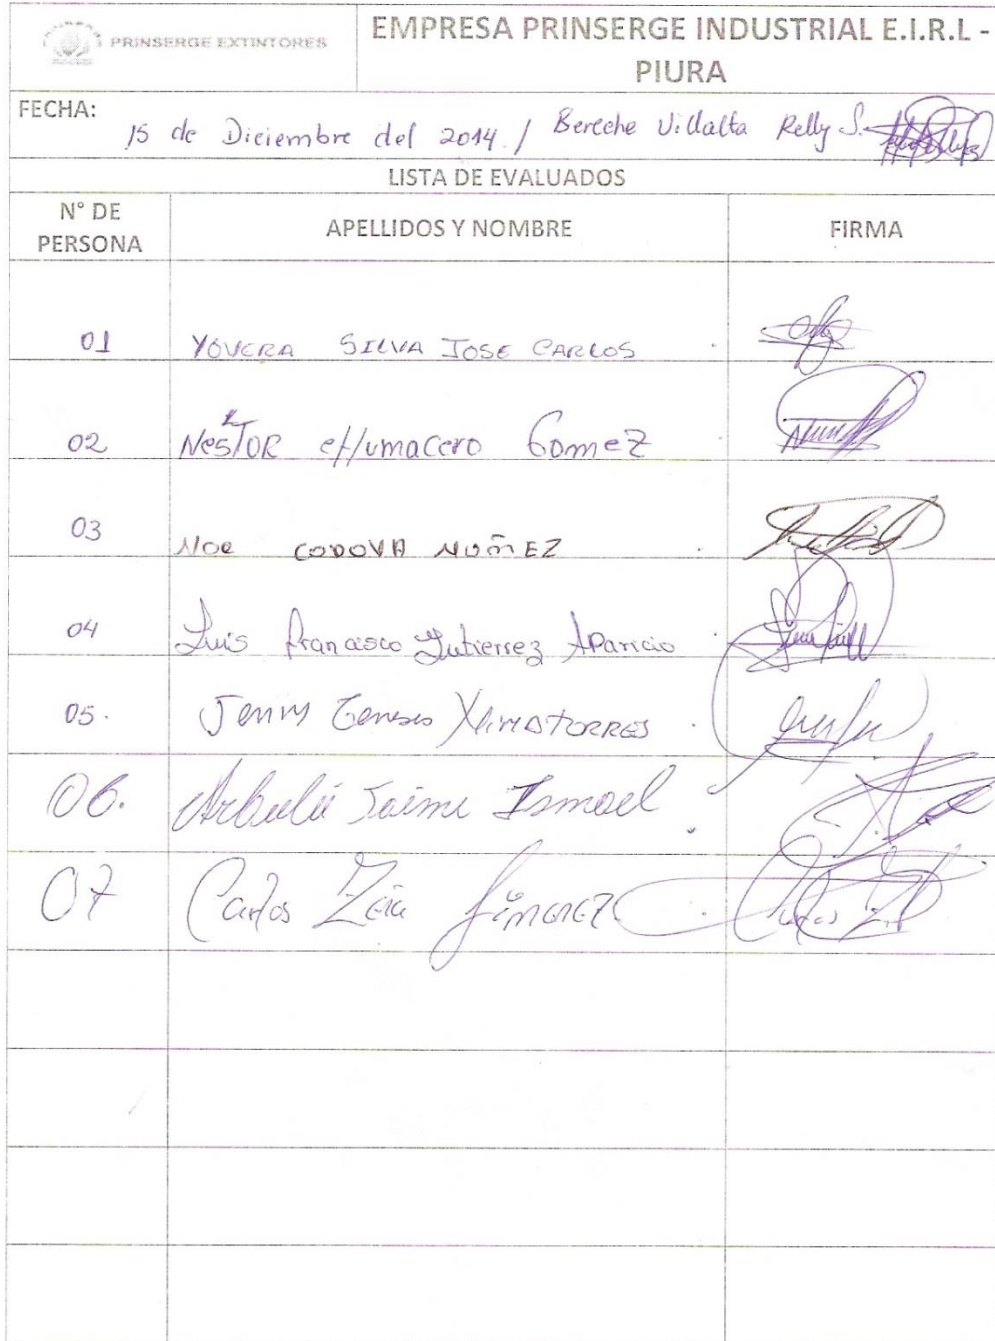 PRINSERGE EXTINTORES
EMPRESA PRINSERGE INDUSTRIAL E.I.R.L -
PIURA
FECHA:
15 de Diciembre del 2014. / Bereche Villalta Relly S.
LISTA DE EVALUADOS
N° DE
PERSONA
APELLIDOS Y NOMBRE
FIRMA
01 YOVERA SILVA JOSE CARLOS
02 NesTOR Chumacero GomeZ
03 Noe CODOVA NUÑEZ
04 Luis francisco Gutierrez Aparicio
05. Jenny TORRES
06. Arbulú Jaime Ismael
07 Carlos Jimenez